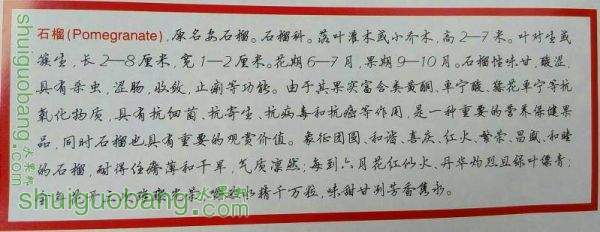 石榴(Pomegranate),原名安石榴。石榴科。落叶灌木或小乔木,高2—7米。叶对生或
簇生,长2—8厘米,宽1—2厘米。花期6—7月,果期9—10月。石榴性味甘、酸涩,
具有杀虫,涩肠,收敛,止痢等功能。由于其果实富含类黄酮、单宁酸、鞣花单宁等抗
氧化物质,具有抗细菌、抗寄生、抗病毒和抗癌等作用,是一种重要的营养保健果
品,同时石榴也具有重要的观赏价值。象征团圆、和谐、喜庆、红火、繁荣、昌盛、和睦
的石榴,耐得住瘠薄和干旱,气质凛然;每到六月花红似火、丹华灼烈且绿叶葆青;
水精千万粒,味甜甘洌芳香隽永。
shuiguobang.com
水果邦
shuiguobang.com
水果邦